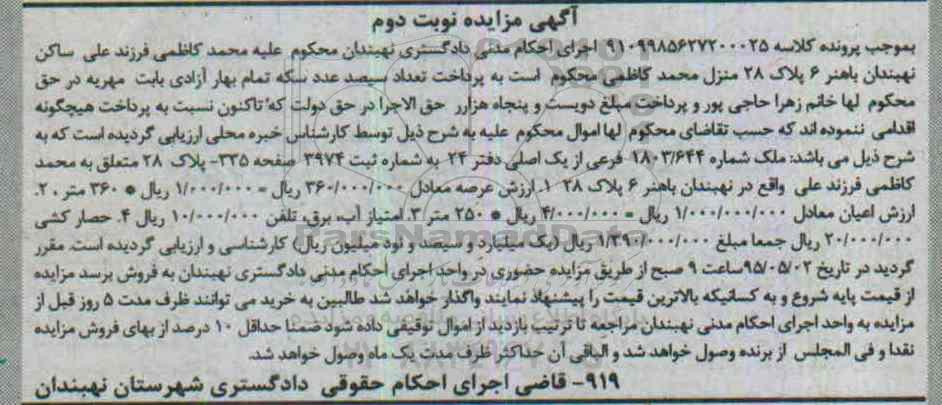 آگهی مزایده نوبت دوم
بموجب پرونده کلاسه ۹۱۰۹۹۸۵۶۲۷۲۰۰۰۲۵ اجرای احکام مدنی دادگستری نهبندان محکوم علیه محمد کاظمی فرزند علی ساکن
نهبندان باهنر ۶ پلاک ۲۸ منزل محمد کاظمی محکوم است به پرداخت تعداد سیصد عدد سکه تمام بهار آزادی بابت مهریه در حق
محکوم لها خانم زهرا حاجی پور و پرداخت مبلغ دویست و پنجاه هزارر حق الاجرا در حق دولت که تاکنون نسبت به پرداخت هیچگونه
اقدامی ننموده اند که حسب تقاضای محکوم لها اموال محکوم علیه به شرح ذیل توسط کارشناس خبره محلی ارزیابی گردیده است که به
شرح ذیل می باشد: ملک شماره ۱۸۰۳/۶۴۴ فرعی از یک اصلی دفتر ۲۴ به شماره ثبت ۳۹۷۴ صفحه ۳۳۵- پلاک ۲۸ متعلق به محمد
کاظمی فرزند علی واقع در نهبندان باهنر ۶ پلاک ۲۸ ۱. ارزش عرصه معادل ۳۶۰/۰۰۰/۰۰۰ ریال = ۱/۰۰۰/۰۰۰ ریال * ۳۶۰ متر ۲.
ارزش اعیان معادل ۱/۰۰۰/۰۰۰/۰۰۰ ریال = ۴/۰۰۰/۰۰۰ ریال * ۲۵۰ متر ۳. امتیاز آب، برق، تلفن ۱۰/۰۰۰/۰۰۰ ریال ۴. حصار کشی
۲۰/۰۰۰/۰۰۰ ریال جمعا مبلغ ۱/۳۹۰/۰۰۰/۰۰۰ ریال (یک میلیارد و سیصد و نود میلیون ریال) کارشناسی و ارزیابی گردیده است. مقرر
گردید در تاریخ ۹۵/۰۵/۰۲ساعت ۹ صبح از طریق مزایده حضوری در واحد اجرای احکام مدنی دادگستری نهبندان به فروش برسد مزایده
از قیمت پایه شروع و به کسانیکه بالاترین قیمت را پیشنهاد نمایند واگذار خواهد شد طالبین به خرید می توانند ظرف مدت ۵ روز قبل از
مزایده به واحد اجرای احکام مدنی نهبندان مراجعه تا ترتیب بازدید از اموال توقیفی داده شود ضمنا حداقل ۱۰ درصد از بهای فروش مزایده
نقدا و فی المجلس از برنده وصول خواهد شد و الباقی آن حداکثر ظرف مدت یک ماه وصول خواهد شد.
۹۱۹- قاضی اجرای احکام حقوقی دادگستری شهرستان نهبندان
ParsNamadData